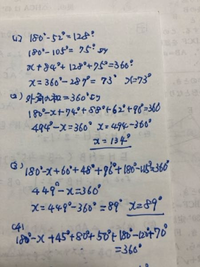 (1) 180°-52°=128°
180°-105°=75°より
x+84°+128°+75°=360°
x=360°-287°=73° x=73°
(2) 外角の和=360°より
180°-x+74°+58°+62°+90°=360
494°-x=360° x=494-360
x=134°
(3)
180°-x+60°+48°+96°+180°-115°=360°
449°-x=360°
x=449°-360°=89° x=89°
(4)
180°-x+45°+80°+50°+180°-120°+70°
=360°